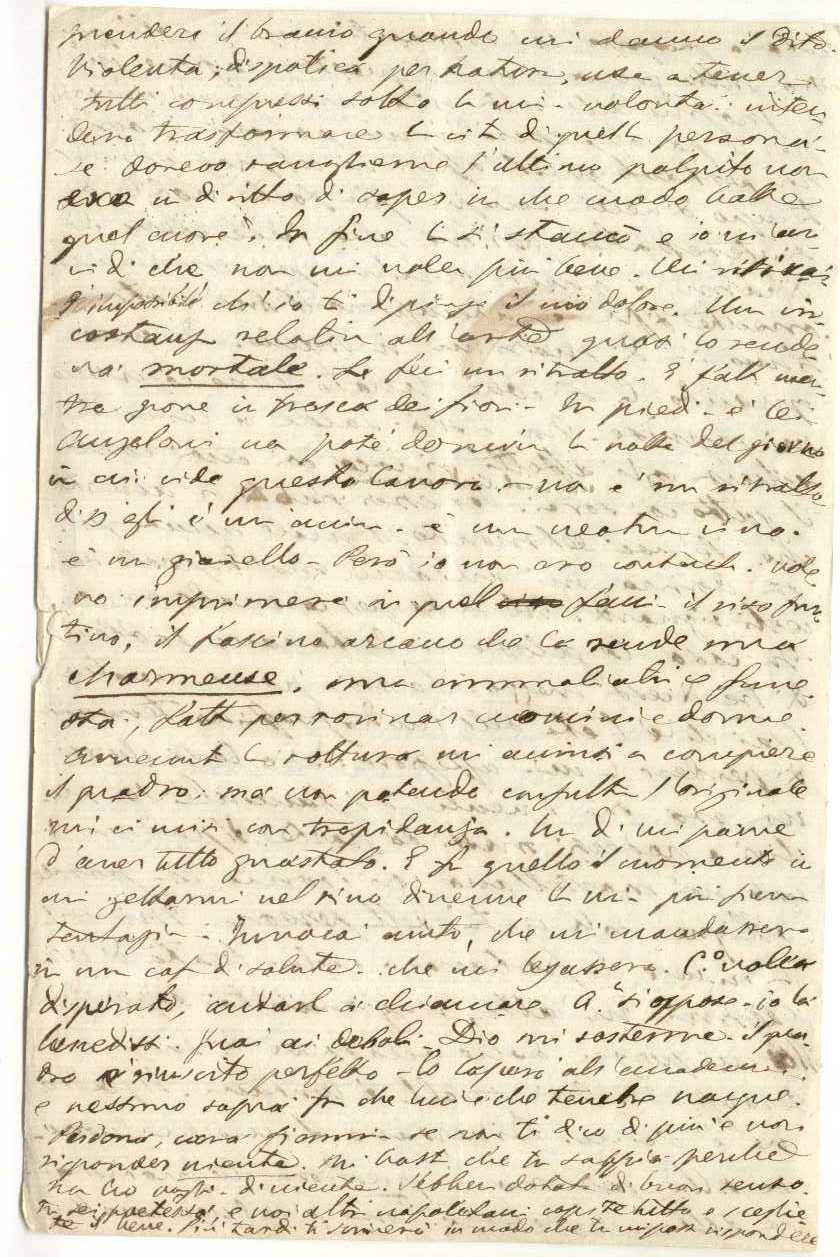 prendere il braccio quando mi danno il dito.
Violenta, dispotica per natura, usa a tener
tutti compressi sotto la mia volontà: inten
devo trasformare la vita di quella persona
se dovevo raccoglierne l'ultimo palpito non
in diritto di saper in che modo batte
quel cuore? In fine la si stancò e io m'av
vidi che non mi volea più bene. Mi
È impossibile ch'io ti dipinga il mio dolore. Una cir
costanza relativa all'arte quasi lo rende
va mortale. Le feci un ritratto. È fatta men
tre pone in fresca dei fiori - In piedi - è lei
Angeloni non poté dormire la notte del giorno
in cui vide questo lavoro - non è un ritratto
diss'egli è un' anima - è una creatura viva.
è un gioiello - Però io non ero contenta. vole
vo imprimere in quel faccia il riso fur
tivo, il fascino arcano che la rende una
charmeuse, una ammaliatrice fune
sta, fatta per rovinar uomini e donne.
Avvenuta la rottura mi accinsi a compiere
il quadro: ma non potendo consultar l'originale
mi ci misi con trepidanza. Un dì mi parve
d'aver tutto guastato. E fu quello il momento in
cui gettarmi nel rino divenne la mia più fiera
tentazione - Invocai aiuto, che mi mandassero
in una casa di salute - che mi legassero. C.º voleva
disperato, andarla a chiamare. A.ª si oppose - io la
benedissi. Guai ai deboli - Dio mi sostenne - il qua
dro è riuscito perfetto - lo lascerò all'accademia
e nessuno saprà fra che luci e che tenebre nacque.
Perdona, cara Giannina se non ti dico di più e non
risponder niente. Mi basta che tu sappia perché
non ho voglia di niente. Sebben dotata di buon senso,
tu sei poetessa e voi altri napoletani capite tutto e sciogliete
te il bene. Più tardi ti scriverò in modo che tu mi possa rispondere